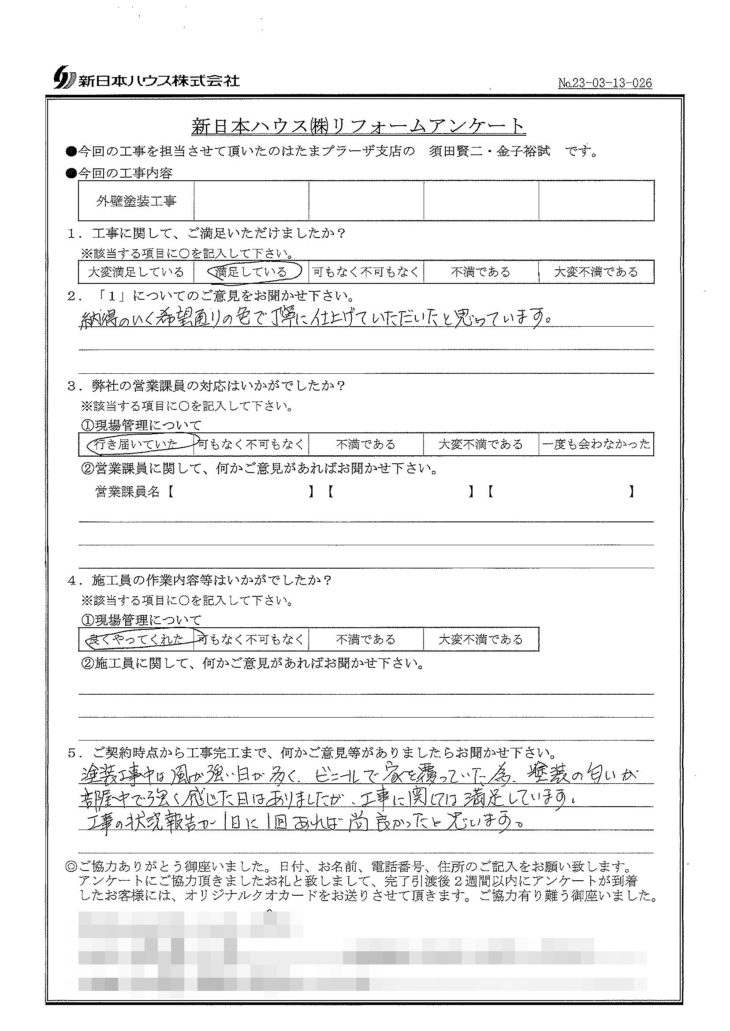 新日本ハウス株式会社
No.23-03-13-026
新日本ハウス㈱リフォームアンケート
●今回の工事を担当させて頂いたのはたまプラーザ支店の 須田賢二・金子裕試 です。
●今回の工事内容
外壁塗装工事
1．工事に関して、ご満足いただけましたか？
※該当する項目に○を記入して下さい。
大変満足している 満足している 可もなく不可もなく 不満である 大変不満である
2．「1」についてのご意見をお聞かせ下さい。
納得のいく希望通りの色で丁寧に仕上げていただいたと思っています。
3．弊社の営業課員の対応はいかがでしたか？
※該当する項目に○を記入して下さい。
①現場管理について
行き届いていた 可もなく不可もなく 不満である 大変不満である 一度も会わなかった
②営業課員に関して、何かご意見があればお聞かせ下さい。
営業課員名【 】【 】【 】
4．施工員の作業内容等はいかがでしたか？
※該当する項目に○を記入して下さい。
①現場管理について
良くやってくれた 可もなく不可もなく 不満である 大変不満である
②施工員に関して、何かご意見があればお聞かせ下さい。
5．ご契約時点から工事完工まで、何かご意見等がありましたらお聞かせ下さい。
塗装工事中は風が強い日が多く、ビニールで家を覆っていた為、塗装の匂いが
部屋中で強く感じた日はありましたが、工事に関しては満足しています。
工事の状況報告が1日に1回あれば尚良かったと思います。
◎ご協力ありがとう御座いました。日付、お名前、電話番号、住所のご記入をお願い致します。
アンケートにご協力頂きましたお礼と致しまして、完了引渡後2週間以内にアンケートが到着
したお客様には、オリジナルクオカードをお送りさせて頂きます。ご協力有り難う御座いました。